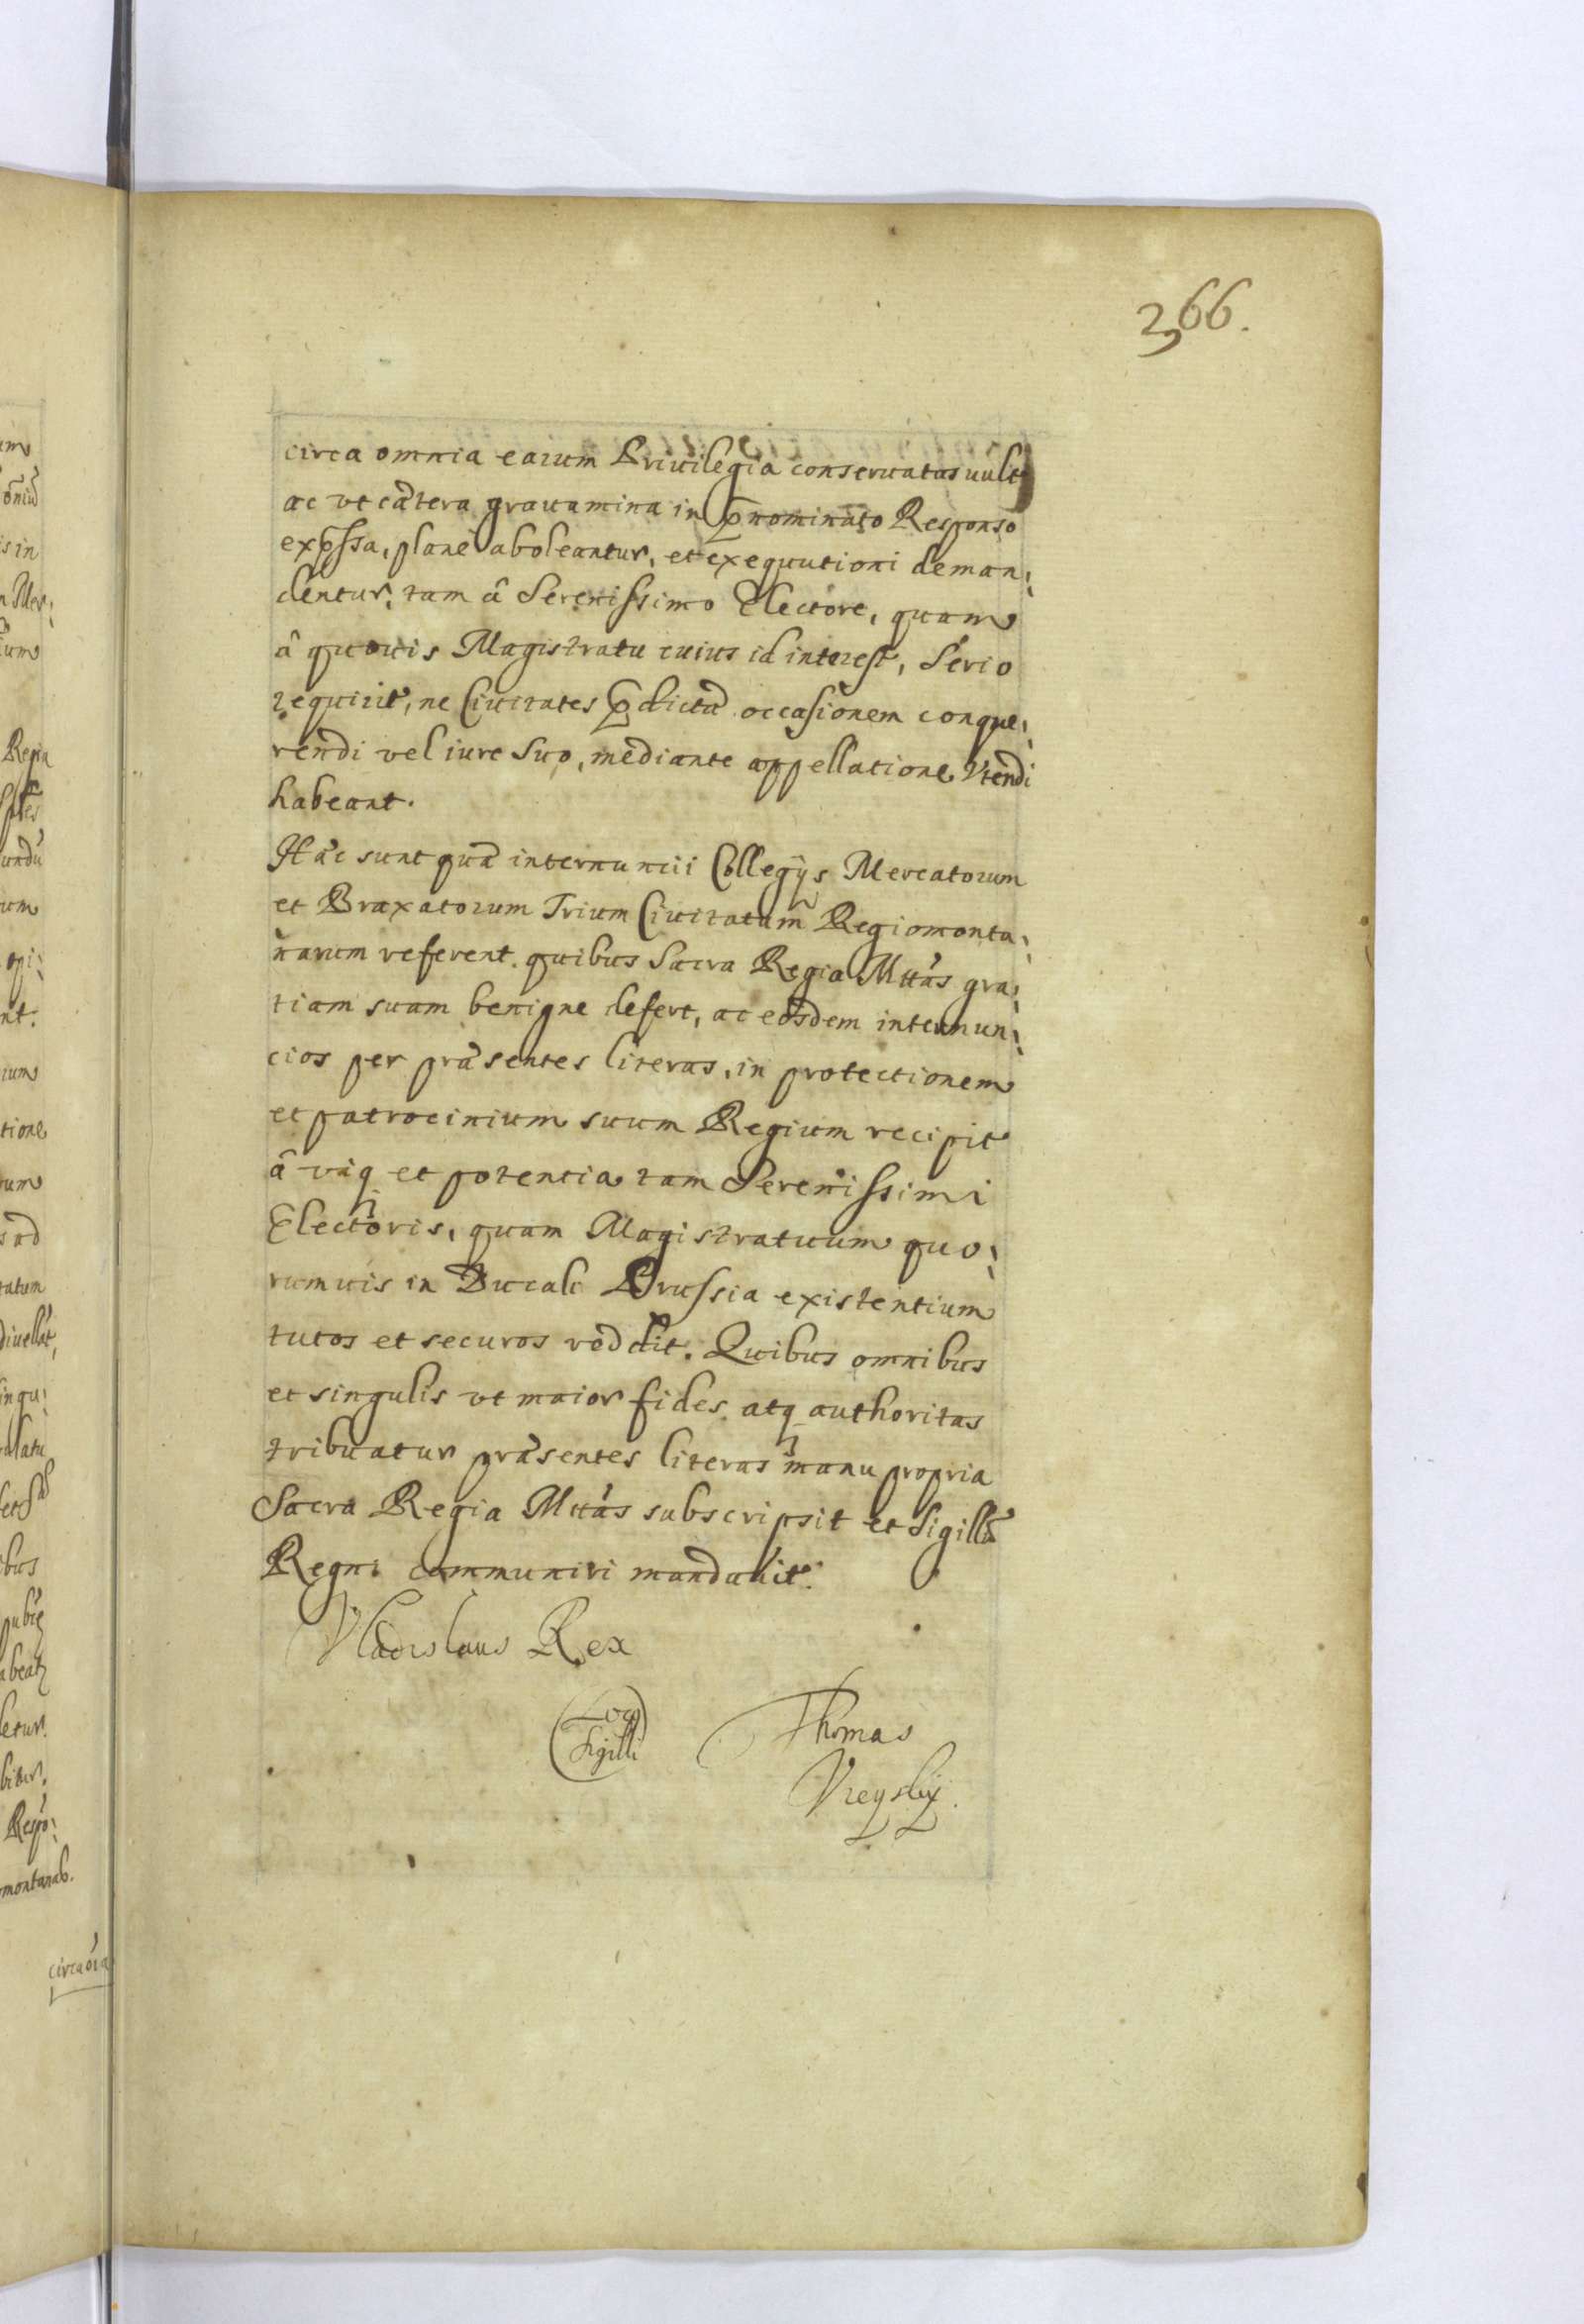 366.
circa omnia earum Privilegia conservatas vult
ac ut cætera gravamina in p̄nominato Responso
exp̄ssa, plane aboleantur, et exequutioni deman:
dentur, tam â Serenissimo Electore, quam
â quovis Magistratu cuius id interest, Serio
requirit, ne Civitates p̄dictæ occasionem conque:
rendi vel iure suo, mediante appellatione Utendi
habeant.
Hæc sunt quæ internuncii Collegijs Mercatorum
et Braxatorum Trium Civitatum Regiomonta:
narum referent. quibus Sacra Regia Mttás gra:
tiam suam benigne defert, ac eosdem internun:
cios per præsentes literas, in protectionem
et patrocinium suum Regium recipit
â viq et potentia tam Serenissimi
Electoris, quam Magistratuum quo:
rumvis in Ducali Prussia existentium
tutos et securos reddit. Quibus omnibus
et singulis ut maior fides atq authoritas
tribuatur præsentes literas manu propria
Sacra Regia Mttás subscripsit et Sigillo
Regni communiri mandavit.
Vladislaus Rex
Loco
Sigilli
Thomas
Vieyskij.
Regia
nt.
tione
ibus
Respo:
montanab.
circa oīa